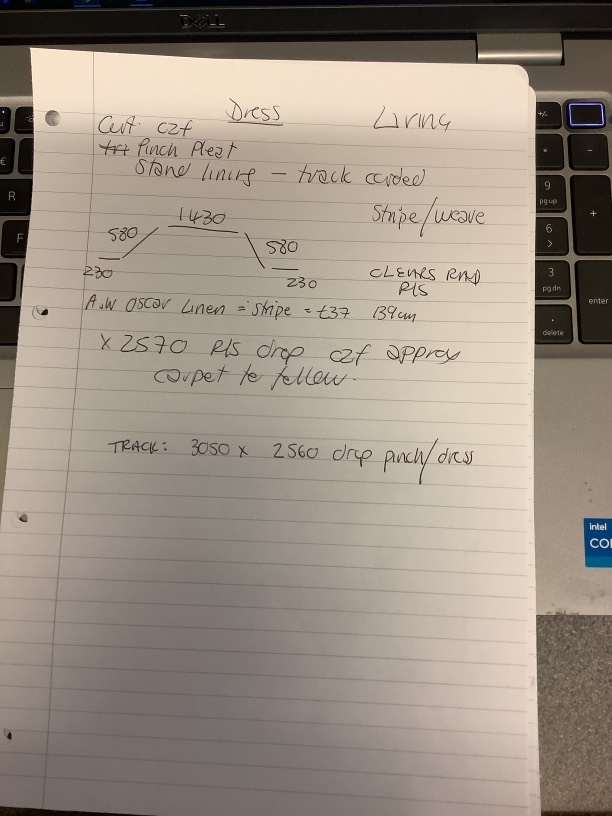 DELL
Dress Living
Curt. c2f
Pinch Pleat
Stand lining - track corded
Stripe/weave
1430
580 580
230 230
CLEARS RAD
PLS
A.W Oscar Linen = Stripe = £37 139cm
x 2570 PLS drop c2f approx
carpet to follow.
TRACK: 3050 x 2560 drop pinch/dress
R
F
€
+/-
*
-
9
pg up
+
6
>
3
pg dn
enter
.
delete
intel